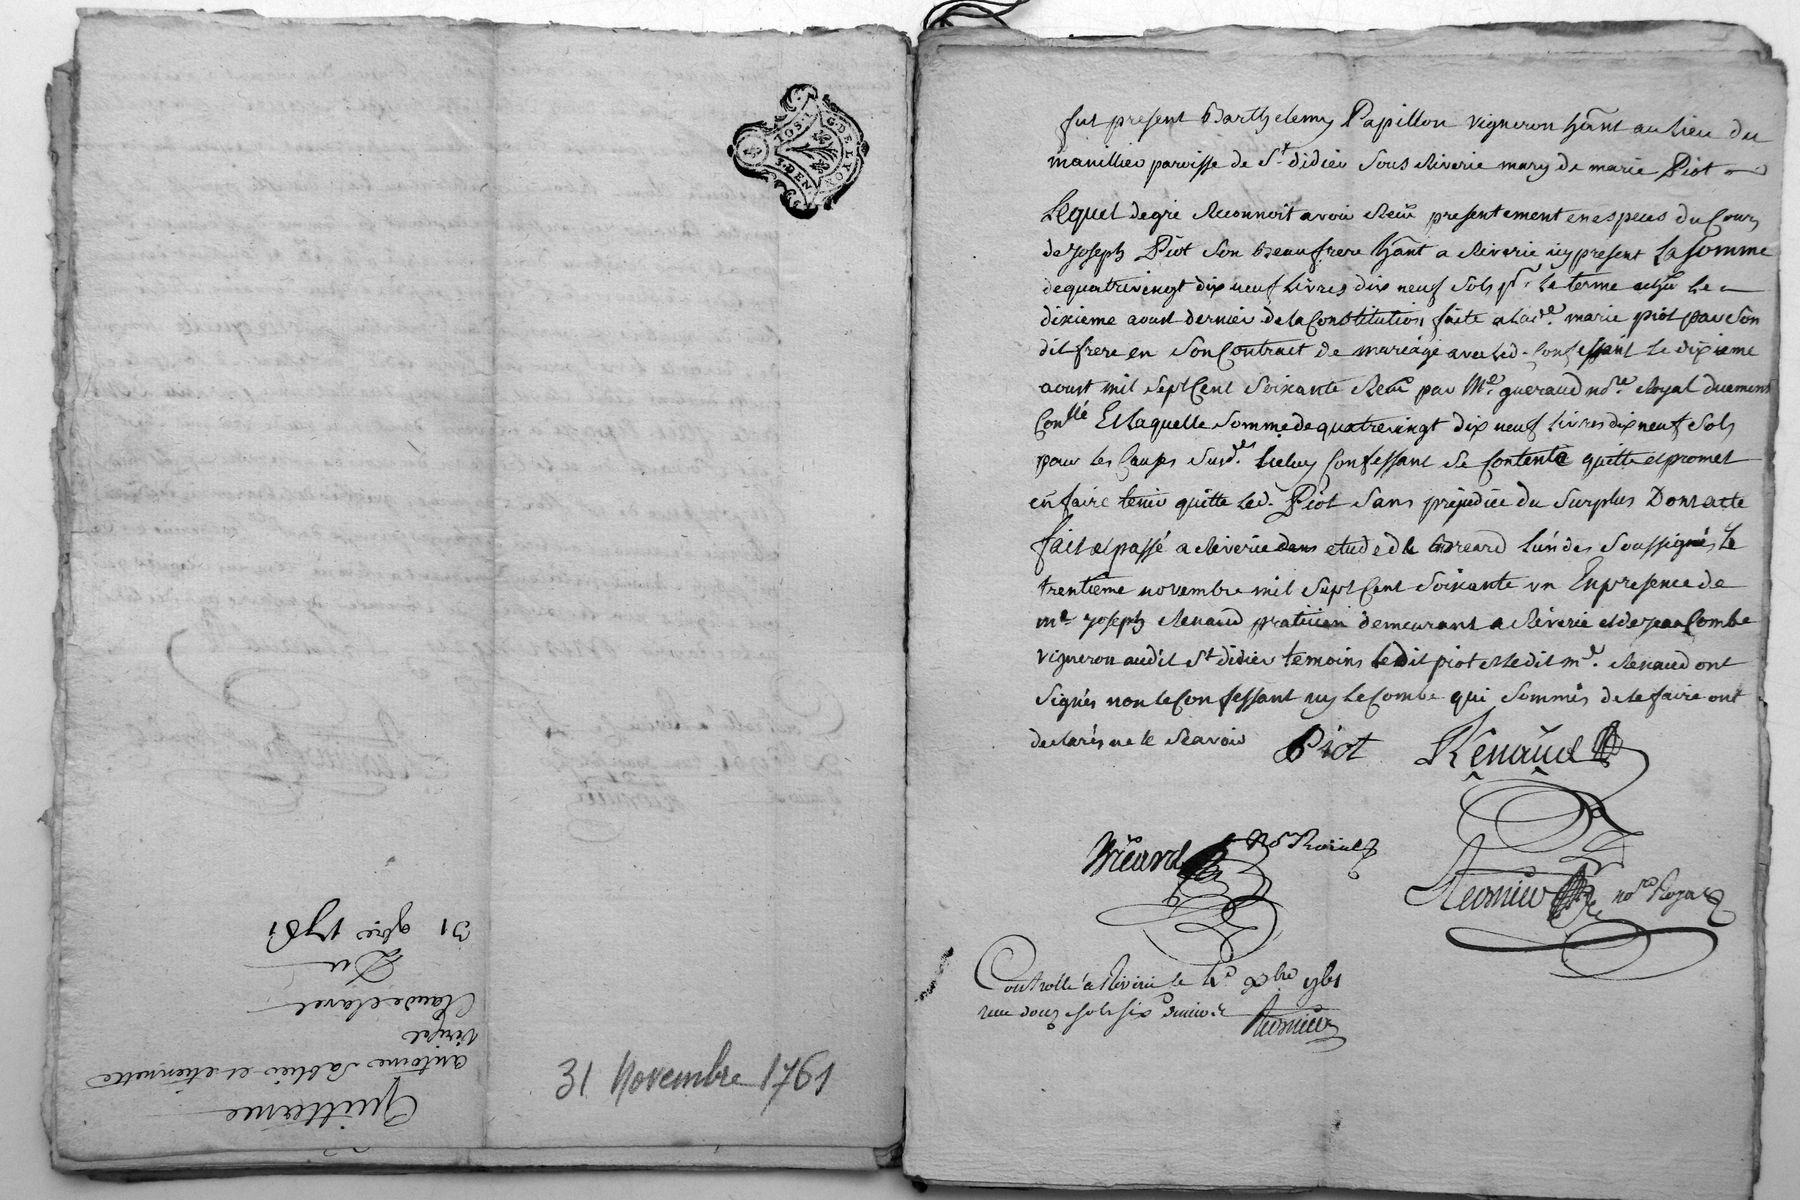 G. DE LYON
2 S. DEN
31 Novembre 1761
Quittance
antoine et etiennette
Claude clavel
Du
31 9bre 1761
fut present Barthelemy Papillon vigneron hãnt au lieu du
manillier paroisse de St. didier sous Riverie mary de marie Piot
Lequel degré Reconnoit avoir Reçu presentement en especes du Cours
de Joseph Piot son beaufrere hãnt a Riverie icy present La somme
de quatrevingt dix neuf Livres dix neuf sols pr. Le terme echu Le
dixieme aoust dernier de la Constitution faite a lad.e marie piot par son
dit frere en son Contract de mariage avec led. Confessant Le dixieme
aoust mil sept Cent soixante Reçu par Me. gueraud nore. Royal duement
Conllé Et laquelle somme de quatrevingt dix neuf Livres dix neuf sols
pour les Causes susd. Iceluy Confessant se Contente quitte et promet
en faire tenir quitte led. Piot sans prejudice du surplus Dont acte
fait et passé a Riverie dans etude de Breard L'un des soussignés Le
trentieme novembre mil sept Cent soixante un En presence de
me. Joseph Renaud praticien demeurant a Riverie et de jean Combe
vigneron audit St didier temoins Ledit piot et Ledit me. Renaud ont
signés non le Confessant ny Le Combe qui sommés de le faire ont
declarés ne le sçavoir Piot Renaud
Breard No Roial
nore Royal
Controllé a Riverie le 10bre 1761
Reçu douze sols six deniers